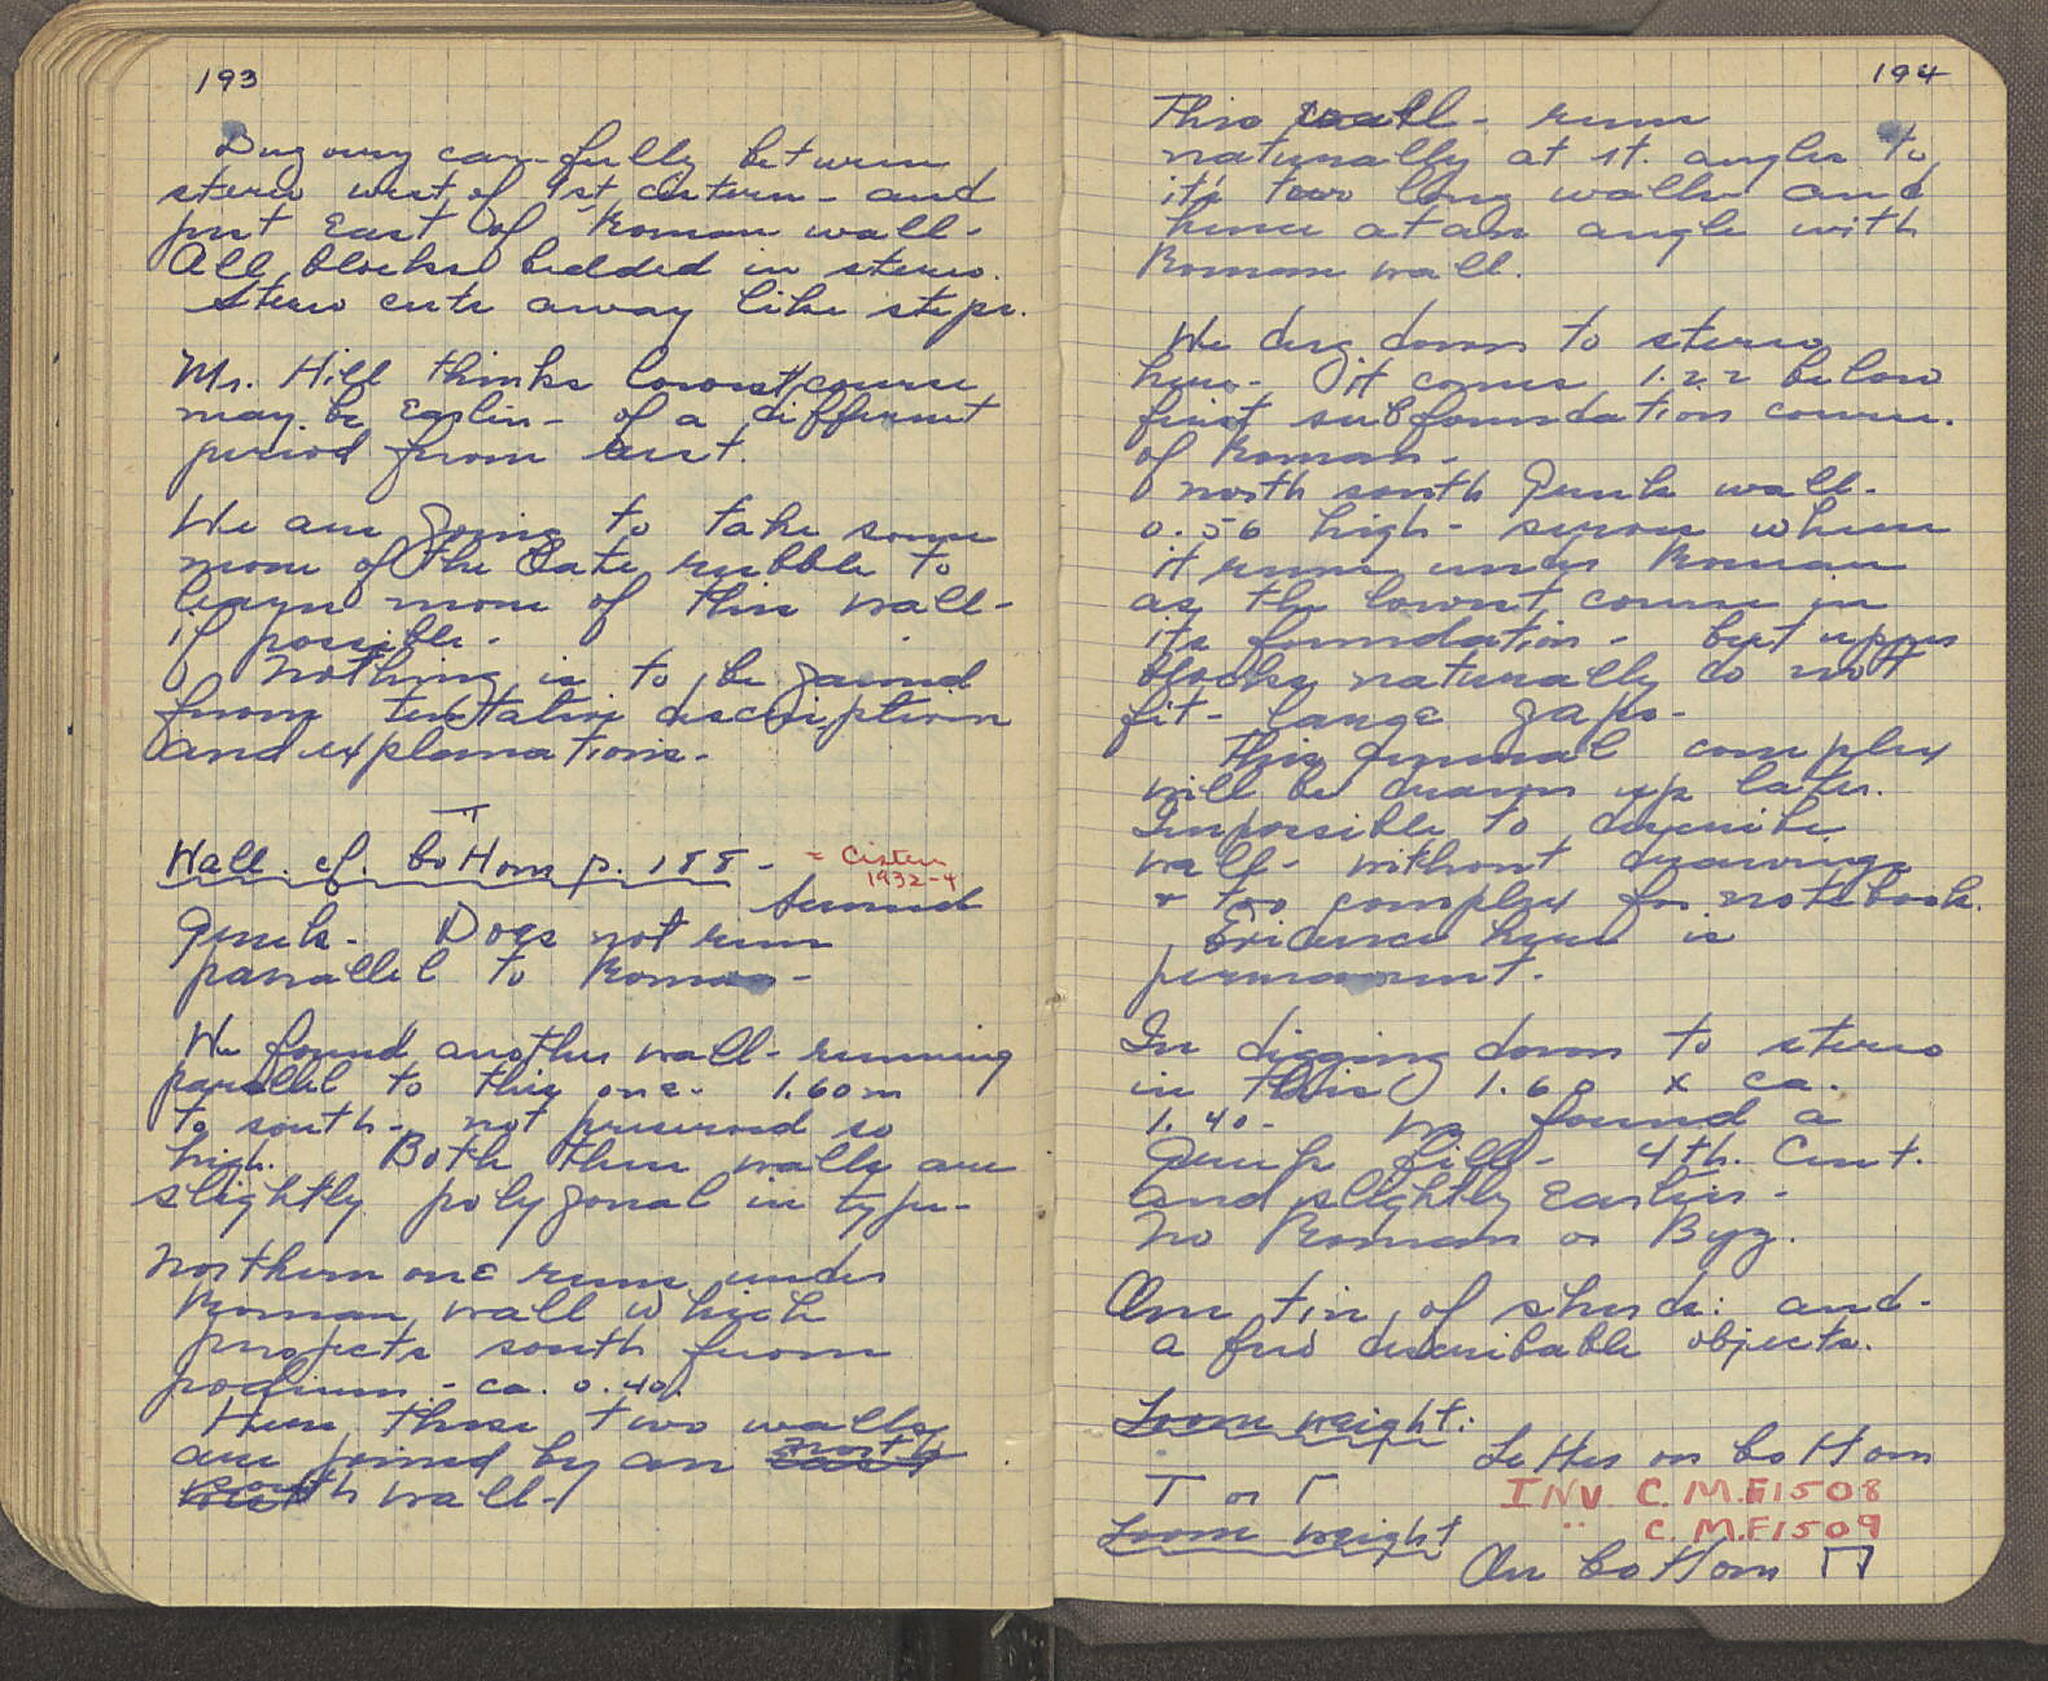 193
Dug away carefully between
stereo west of 1st cistern - and
just East of Roman wall -
All blocks bedded in stereo.
Stereo cuts away like steps.
Mr. Hill thinks lowest course
may be Earlier - of a different
period from rest.
We are going to take some
more of the late rubble to
learn more of this wall -
if possible.
Nothing is to be gained
from tentative description
and explanations.
Wall. cf. bottom p. 188 - = Cistern
1932-4
turned
Greek. Does not run
parallel to Roman -
We found another wall - running
parallel to this one. 1.60 m
to south - not preserved so
high. Both these walls are
slightly polygonal in type.
Northern one runs under
Roman wall which
projects south from
podium - ca. 0.40.
Here these two walls
are joined by an north
south wall -
194
This wall - runs
naturally at rt. angles to
it's two long walls and
hence at an angle with
Roman wall.
We dug down to stereo
here - it comes 1.22 below
first subfoundation course
of Roman -
north south Greek wall -
0.56 high - serves where
it runs under Roman
as the lowest course in
its foundation - but upper
blocks naturally do not
fit - large gaps -
This general complex
will be drawn up later.
Impossible to describe
wall - without drawings
& too complex for notebook.
Evidence here is
permanent.
In digging down to stereo
in this 1.60 x ca.
1.40 - we found a
Greek fill - 4th. Cent.
and slightly Earlier -
No Roman or Byz.
One tin of sherds: and -
a few describable objects.
Loom weight:
Letter on bottom
T or Γ INV. C. M.F.1508
" C. M.F.1509
Loom weight
On bottom Π